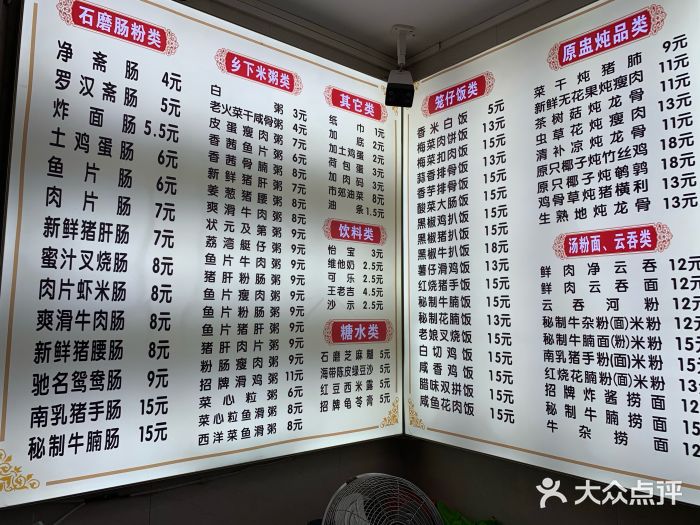 石磨肠粉类
净斋肠 4元
罗汉斋肠 5元
炸面肠 5.5元
土鸡蛋肠 6元
鱼片肠 6元
肉片肠 7元
新鲜猪肝肠 7元
蜜汁叉烧肠 8元
肉片虾米肠 8元
爽滑牛肉肠 8元
新鲜猪腰肠 8元
驰名鸳鸯肠 9元
南乳猪手肠 15元
秘制牛腩肠 15元
乡下米粥类
白粥 3元
老火菜干咸骨粥 4元
皮蛋瘦肉粥 7元
香茜鱼片粥 6元
香茜骨腩粥
新鲜猪肝粥
姜葱猪腰粥 8元
爽滑牛肉粥 8元
状元及第粥 9元
荔湾艇仔粥 9元
鱼片猪肝粥 9元
猪肝粉肠粥 9元
鱼片瘦肉粥 9元
鱼片猪肝粥 9元
猪肝肉片粥 9元
粉肠瘦肉粥 9元
招牌滑鸡粥 11元
菜心粒粥 6元
菜心粒鱼滑粥 8元
西洋菜鱼滑粥 8元
其它类
纸巾 1元
加底 2元
加土鸡蛋 2元
荷包蛋 2元
加肉码 3元
市郊油菜 8元
油条 1.5元
饮料类
怡宝 3元
维他奶 2.5元
可乐 2.5元
王老吉 4.5元
沙示 2.5元
糖水类
石磨芝麻糊 5元
海带陈皮绿豆沙 5元
红豆西米露 5元
招牌龟苓膏 5元
笼仔饭类
香米白饭 5元
梅菜肉饼饭 13元
梅菜扣肉饭 13元
蒜香排骨饭 13元
香芋排骨饭 15元
酸菜大肠饭 15元
黑椒鸡扒饭 15元
黑椒猪扒饭 15元
黑椒牛扒饭 18元
薯仔滑鸡饭 13元
红烧猪手饭 15元
秘制牛腩饭 15元
秘制花腩饭 13元
老娘叉烧饭 15元
白切鸡饭 15元
咸香鸡饭 15元
腊味双拼饭 15元
咸鱼花肉饭 15元
原盅炖品类
菜干炖猪肺 9元
新鲜无花果炖瘦肉 11元
茶树菇炖龙骨 11元
虫草花炖瘦肉 11元
清补凉炖龙骨 11元
原只椰子炖竹丝鸡 18元
原只椰子炖鹌鹑 18元
鸡骨草炖猪横利 13元
生熟地炖龙骨 13元
汤粉面、云吞类
鲜肉净云吞 12元
鲜肉云吞面 12元
云吞河粉 12元
秘制牛杂粉(面)米粉 12元
秘制牛腩面(粉)米粉
南乳猪手粉(面)米粉
红烧花腩面(粉)米粉
招牌炸酱捞面
秘制牛腩捞面
牛杂捞面
大众点评